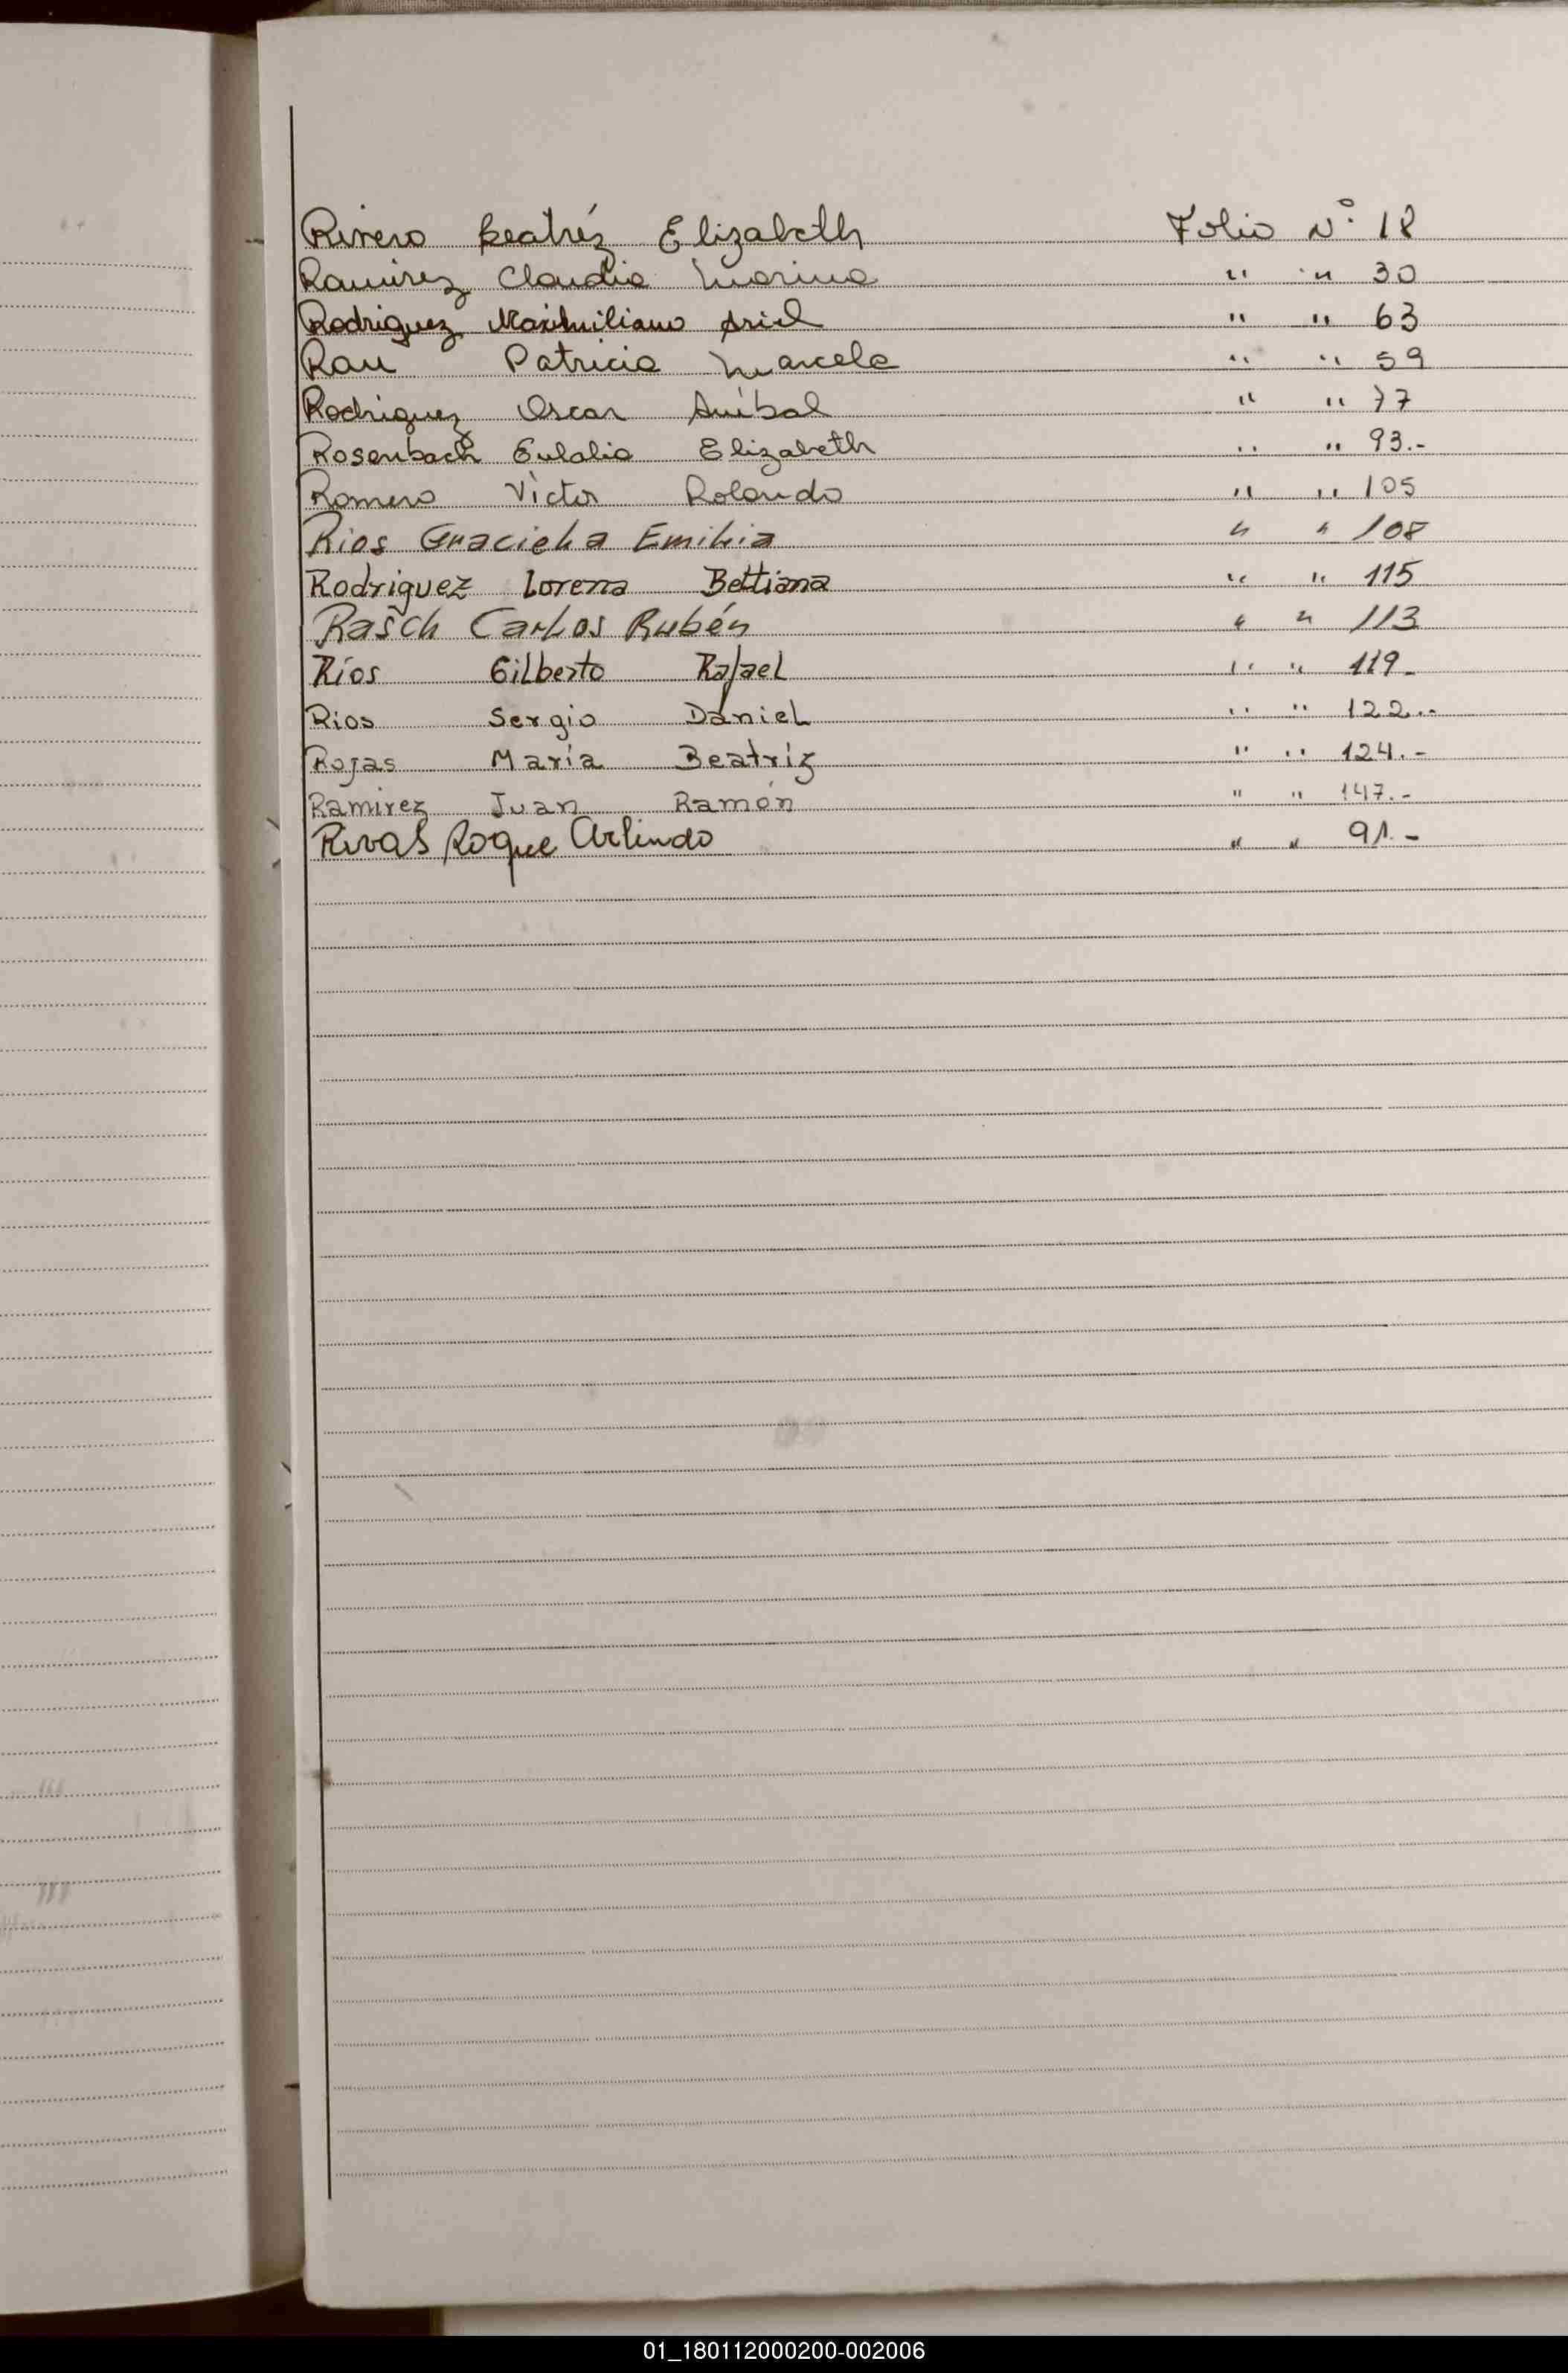 Rivero Beatriz Elizabeth Folio Nº 18
Ramirez Claudia Marina " " 30
Rodriguez Maximiliano Ariel " " 63
Rau Patricia Marcela " " 59
Rodriguez Oscar Anibal " " 77
Rosenbach Eulalia Elizabeth " " 93.-
Romero Victor Rolando " " 105
Rios Graciela Emilia " " 108
Rodriguez Lorena Bettiana " " 115
Rasch Carlos Rubén " " 113
Ríos Gilberto Rafael " " 119-
Rios Sergio Daniel " " 122.-
Rojas María Beatriz " " 124.-
Ramirez Juan Ramón " " 147.-
Rivas Roque Arlindo " " 91.-
01_180112000200-002006